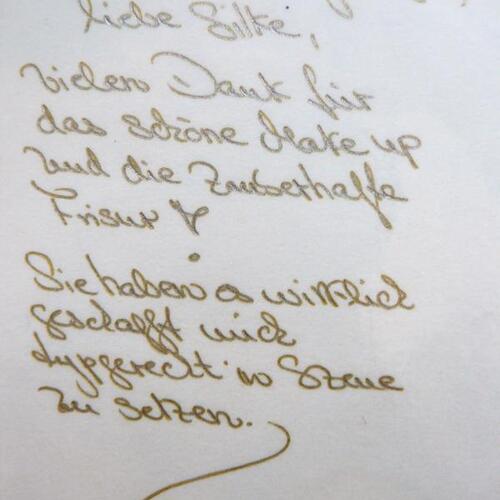 liebe Silke,
vielen Dank für
das schöne Make up
und die Zauberhafte
Frisur
Sie haben es wirklich
geschafft mich
typgerecht in Szene
zu setzen.